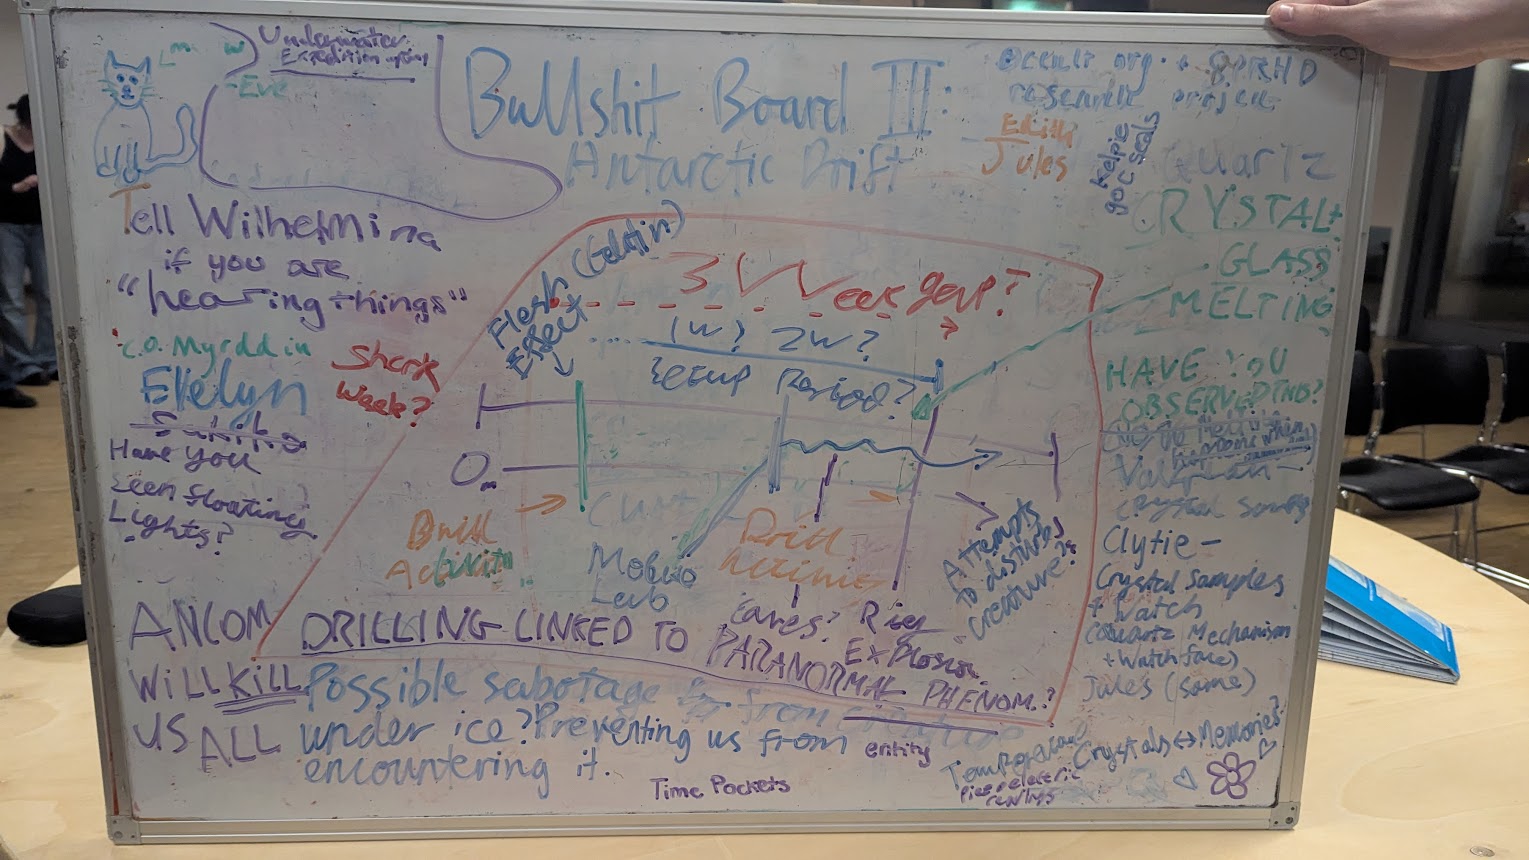 Underwater
Expedition
-Eve
Bullshit Board III:
Antarctic Drift
Occult org. +
research project
Edith
Jules
Kelpie
goc seals
Quartz
CRYSTAL+
GLASS
MELTING
Tell Wilhelmina
if you are
"hearing things"
c.o. Myrddin
Evelyn
Have you
seen floating
Lights?
Shark
Week?
Flesh (Gelatin)
Effect
3 Week gap?
(1w?) 2w?
Setup Period?
HAVE YOU
OBSERVED THIS?
Drill
Activity
Mobile
Lab
Drill
Attempts
to disturb
creature?
Eaves? Rig
Explosion
DRILLING LINKED TO
PARANORMAL PHENOM.?
ANCOM
WILL KILL
US ALL
Possible sabotage from
under ice? Preventing us from entity
encountering it.
Time Pockets
Crystal Samples
Clytie -
Crystal Samples
+ Watch
(Quartz Mechanism
+ Watch face)
Jules (same)
Crystals <-> Memories?
Piezoelectric